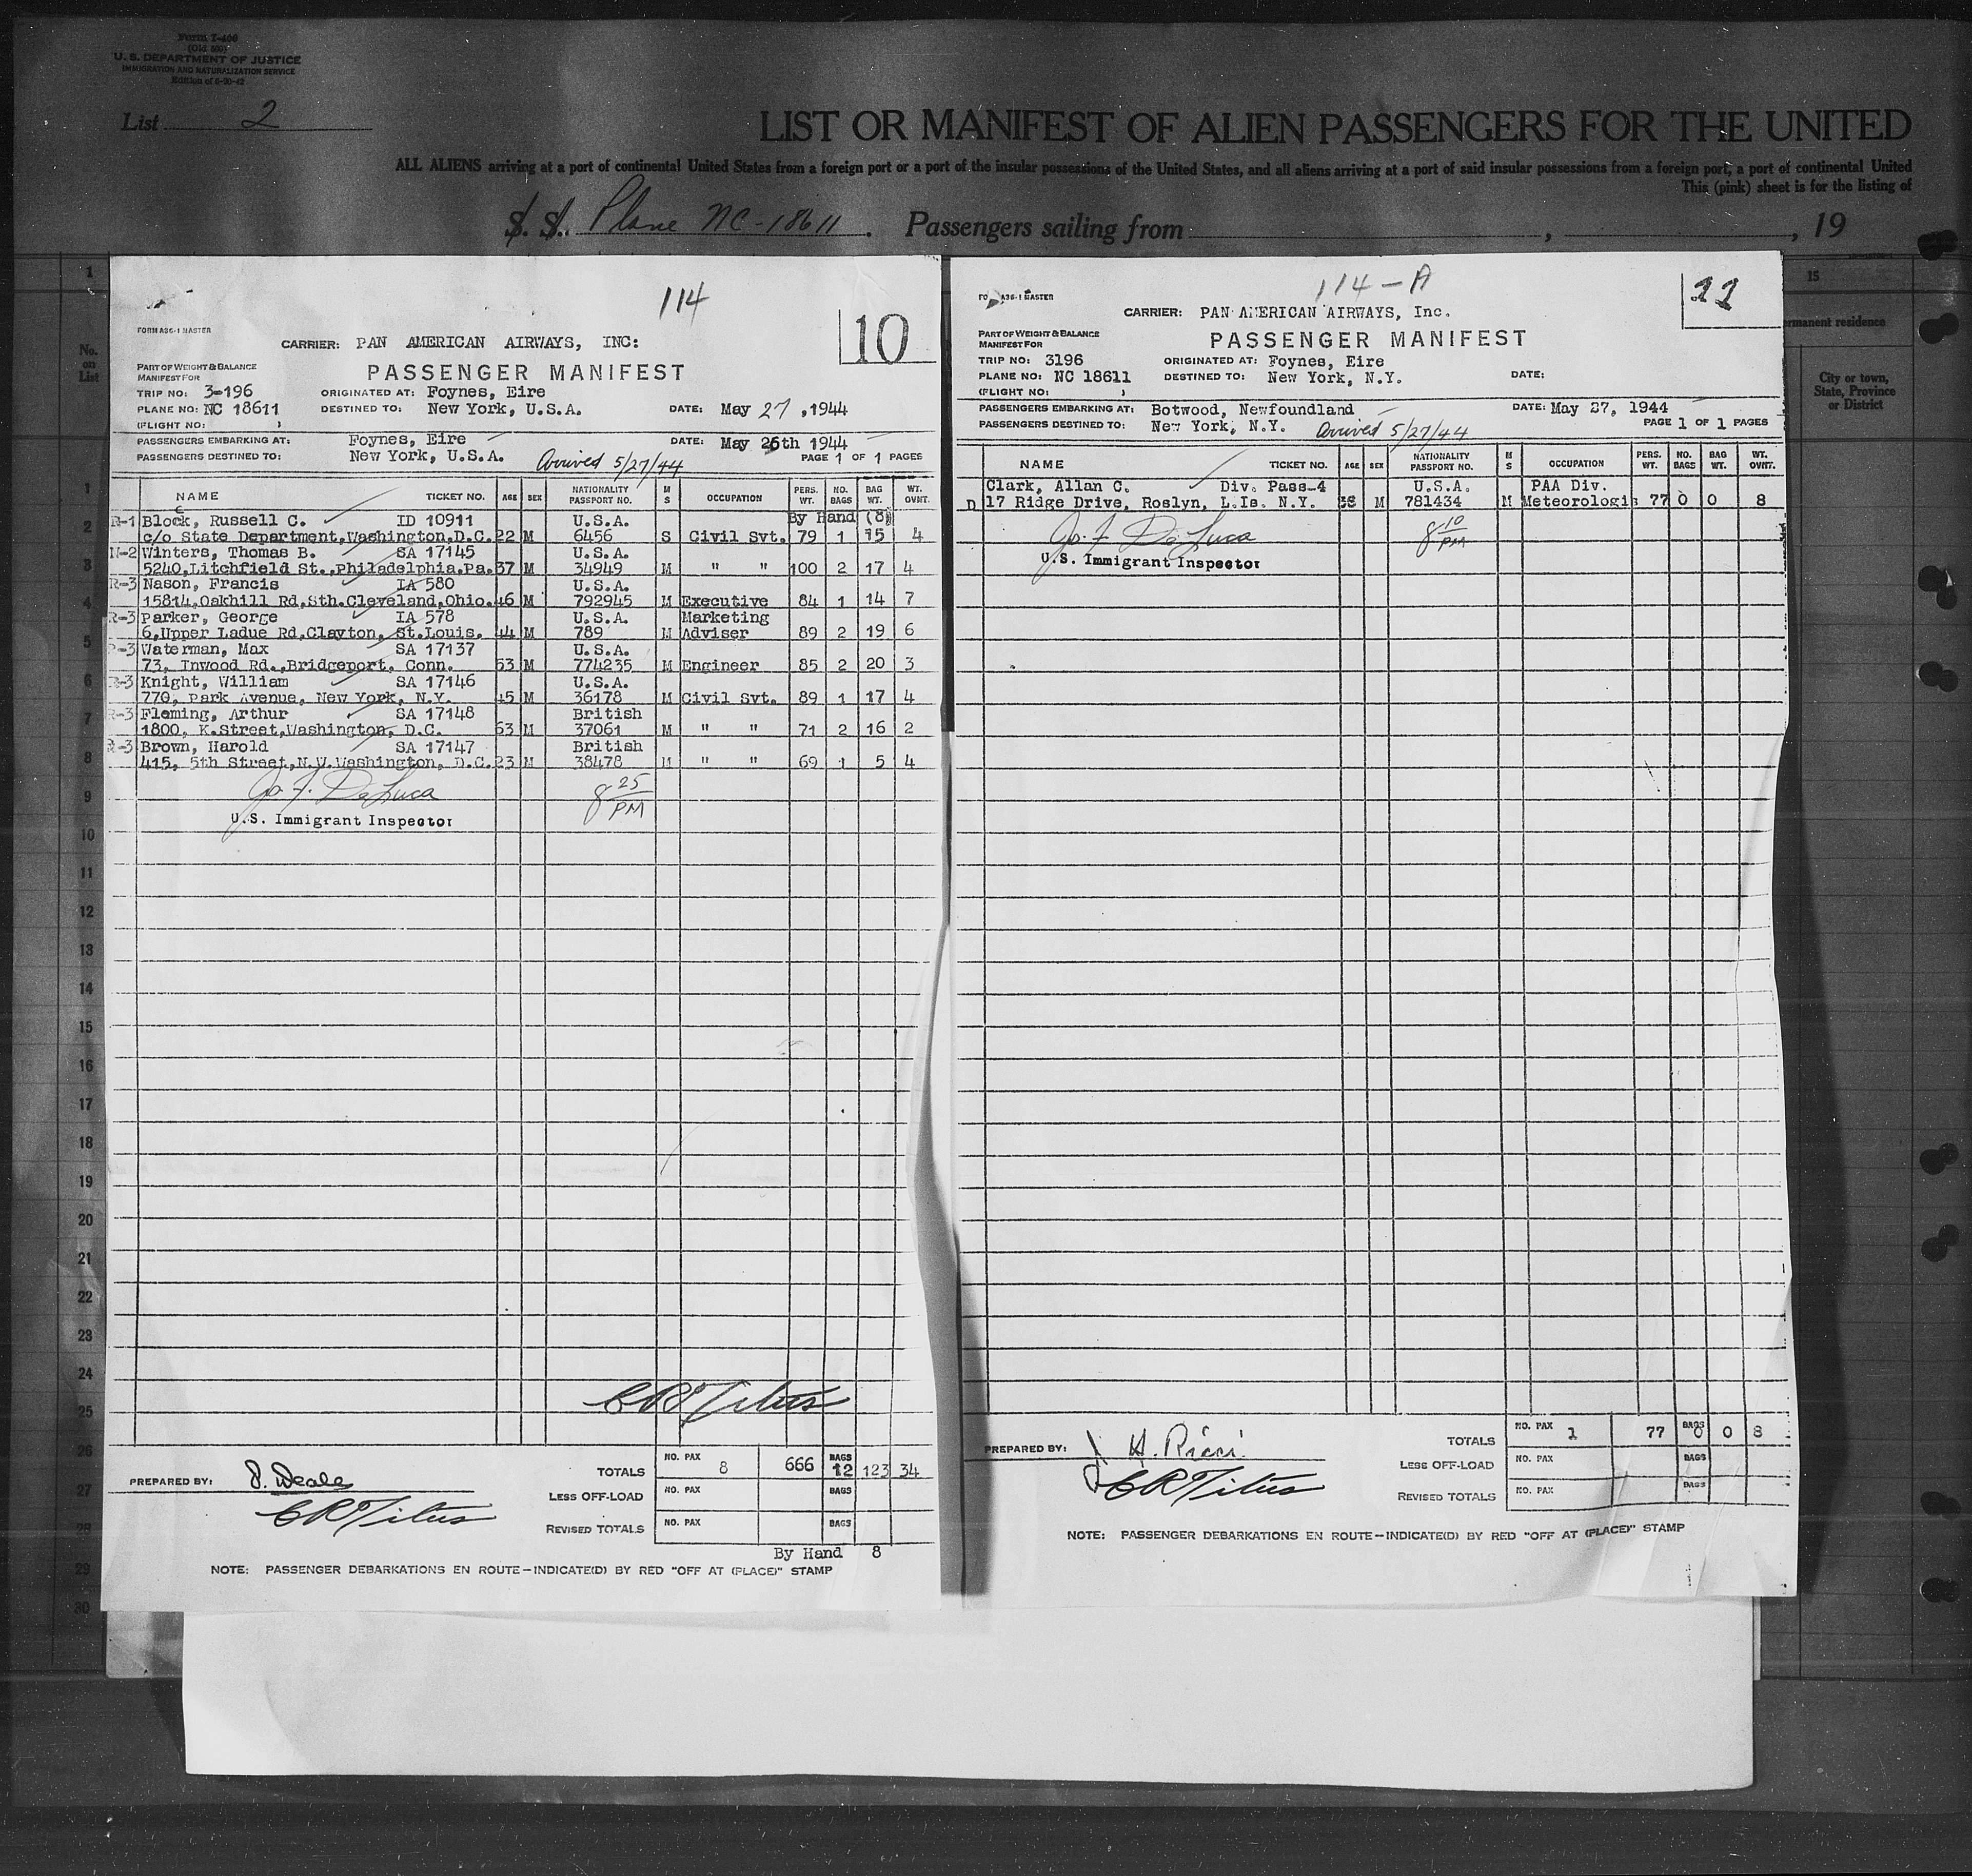 Form I-400
(Old 500)
U. S. DEPARTMENT OF JUSTICE
IMMIGRATION AND NATURALIZATION SERVICE
Edition of 6-20-42
List 2
LIST OR MANIFEST OF ALIEN PASSENGERS FOR THE UNITED
ALL ALIENS arriving at a port of continental United States from a foreign port or a port of the insular possessions of the United States, and all aliens arriving at a port of said insular possessions from a foreign port, a port of continental United
This (pink) sheet is for the listing of
S. S. Plane NC-18611. Passengers sailing from , , 19
No. on List
15
rmanent residence
City or town, State, Province or District
114
10
FORM A36-1 MASTER
CARRIER: PAN AMERICAN AIRWAYS, INC:
PART OF WEIGHT & BALANCE
MANIFEST FOR
PASSENGER MANIFEST
TRIP NO: 3-196 ORIGINATED AT: Foynes, Eire
PLANE NO: NC 18611 DESTINED TO: New York, U.S.A. DATE: May 27, 1944
(FLIGHT NO: )
PASSENGERS EMBARKING AT: Foynes, Eire DATE: May 26th 1944
PASSENGERS DESTINED TO: New York, U.S.A. Arrived 5/27/44 PAGE 1 OF 1 PAGES
NAME TICKET NO. AGE SEX NATIONALITY PASSPORT NO. M S OCCUPATION PERS. WT. NO. BAGS BAG WT. WT. OVNT.
By Hand (8)
R-1 Block, Russell C. ID 10911 U.S.A.
c/o State Department, Washington, D.C. 22 M 6456 S Civil Svt. 79 1 15 4
N-2 Winters, Thomas B. SA 17145 U.S.A.
5240, Litchfield St., Philadelphia, Pa. 37 M 34949 M " " 100 2 17 4
R-3 Nason, Francis IA 580 U.S.A.
15814, Oakhill Rd, Sth. Cleveland, Ohio. 46 M 792945 M Executive 84 1 14 7
R-3 Parker, George IA 578 U.S.A. Marketing
6, Upper Ladue Rd, Clayton, St. Louis. 44 M 789 M Adviser 89 2 19 6
R-3 Waterman, Max SA 17137 U.S.A.
73, Inwood Rd., Bridgeport, Conn. 63 M 774235 M Engineer 85 2 20 3
R-3 Knight, William SA 17146 U.S.A.
770, Park Avenue, New York, N.Y. 45 M 36178 M Civil Svt. 89 1 17 4
R-3 Fleming, Arthur SA 17148 British
1800, K. Street, Washington, D.C. 63 M 37061 M " " 71 2 16 2
R-3 Brown, Harold SA 17147 British
415, 5th Street, N.W. Washington, D.C. 23 M 38478 M " " 69 1 5 4
Jo. F. De Luca 8 25 PM
U.S. Immigrant Inspector
1
2
3
4
5
6
7
8
9
10
11
12
13
14
15
16
17
18
19
20
21
22
23
24
25
26
27
28
29
30
CR Titus
PREPARED BY: J. Weale
CR Titus
TOTALS NO. PAX 8 666 BAGS 12 123 34
LESS OFF-LOAD NO. PAX BAGS
REVISED TOTALS NO. PAX BAGS
By Hand 8
NOTE: PASSENGER DEBARKATIONS EN ROUTE—INDICATE(D) BY RED "OFF AT (PLACE)" STAMP
114-A
FO A36-1 MASTER
CARRIER: PAN AMERICAN AIRWAYS, Inc.
PART OF WEIGHT & BALANCE
MANIFEST FOR
PASSENGER MANIFEST
TRIP NO: 3196 ORIGINATED AT: Foynes, Eire
PLANE NO: NC 18611 DESTINED TO: New York, N.Y. DATE:
(FLIGHT NO: )
PASSENGERS EMBARKING AT: Botwood, Newfoundland DATE: May 27, 1944
PASSENGERS DESTINED TO: New York, N.Y. Arrived 5/27/44 PAGE 1 OF 1 PAGES
NAME TICKET NO. AGE SEX NATIONALITY PASSPORT NO. M S OCCUPATION PERS. WT. NO. BAGS BAG WT. WT. OVNT.
Clark, Allan C. Div. Pass-4 U.S.A. PAA Div.
D 17 Ridge Drive, Roslyn, L.Is. N.Y. 38 M 781434 M Meteorologis 77 0 0 8
Jo. F. De Luca 8 10 PM
U.S. Immigrant Inspector
PREPARED BY: H. Ricci
CR Titus
TOTALS NO. PAX 1 77 BAGS 0 0 8
LESS OFF-LOAD NO. PAX BAGS
REVISED TOTALS NO. PAX BAGS
NOTE: PASSENGER DEBARKATIONS EN ROUTE—INDICATE(D) BY RED "OFF AT (PLACE)" STAMP